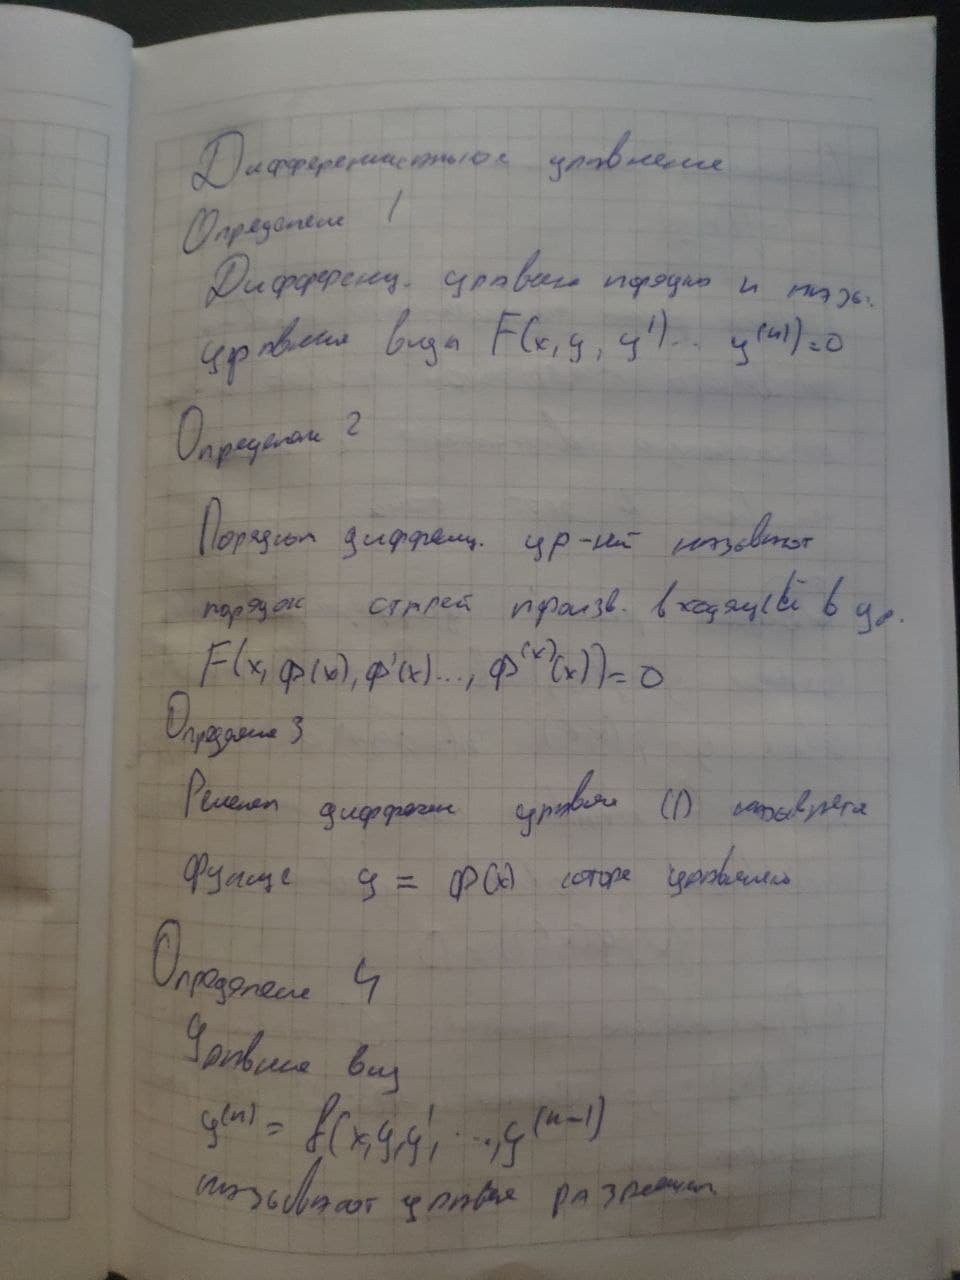 Дифференциальное уравнение
Определение 1
Дифференц. уравнен порядка n назв.
уравнения вида F(x, y, y')... y^(n))=0
Определение 2
Порядком дифференц. ур-ний называют
порядок старшей произв. входящей в ур.
F(x, φ(x), φ'(x)..., φ^(x)(x))=0
Определение 3
Решением дифферен уравнен (1) называется
функция y = φ(x) которе уравнению
Определение 4
Уравнение вид
y^(n) = f(x,y,y', ...,y^(n-1))
называют уравнен разрешен